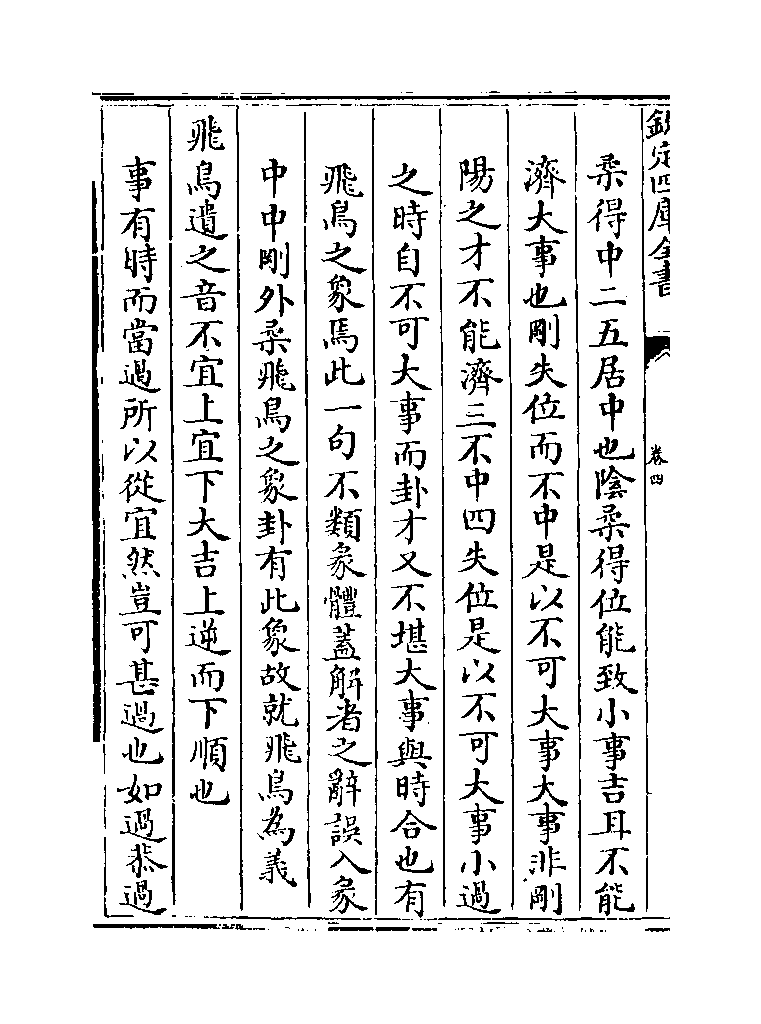 欽定四庫全書
卷四
柔得中二五居中也陰柔得位能致小事吉耳不能
濟大事也剛失位而不中是以不可大事大事非剛
陽之才不能濟三不中四失位是以不可大事小過
之時自不可大事而卦才又不堪大事與時合也有
飛鳥之象焉此一句不類彖體蓋解者之辭誤入彖
中中剛外柔飛鳥之象卦有此象故就飛鳥為義
飛鳥遺之音不宜上宜下大吉上逆而下順也
事有時而當過所以從宜然豈可甚過也如過恭過